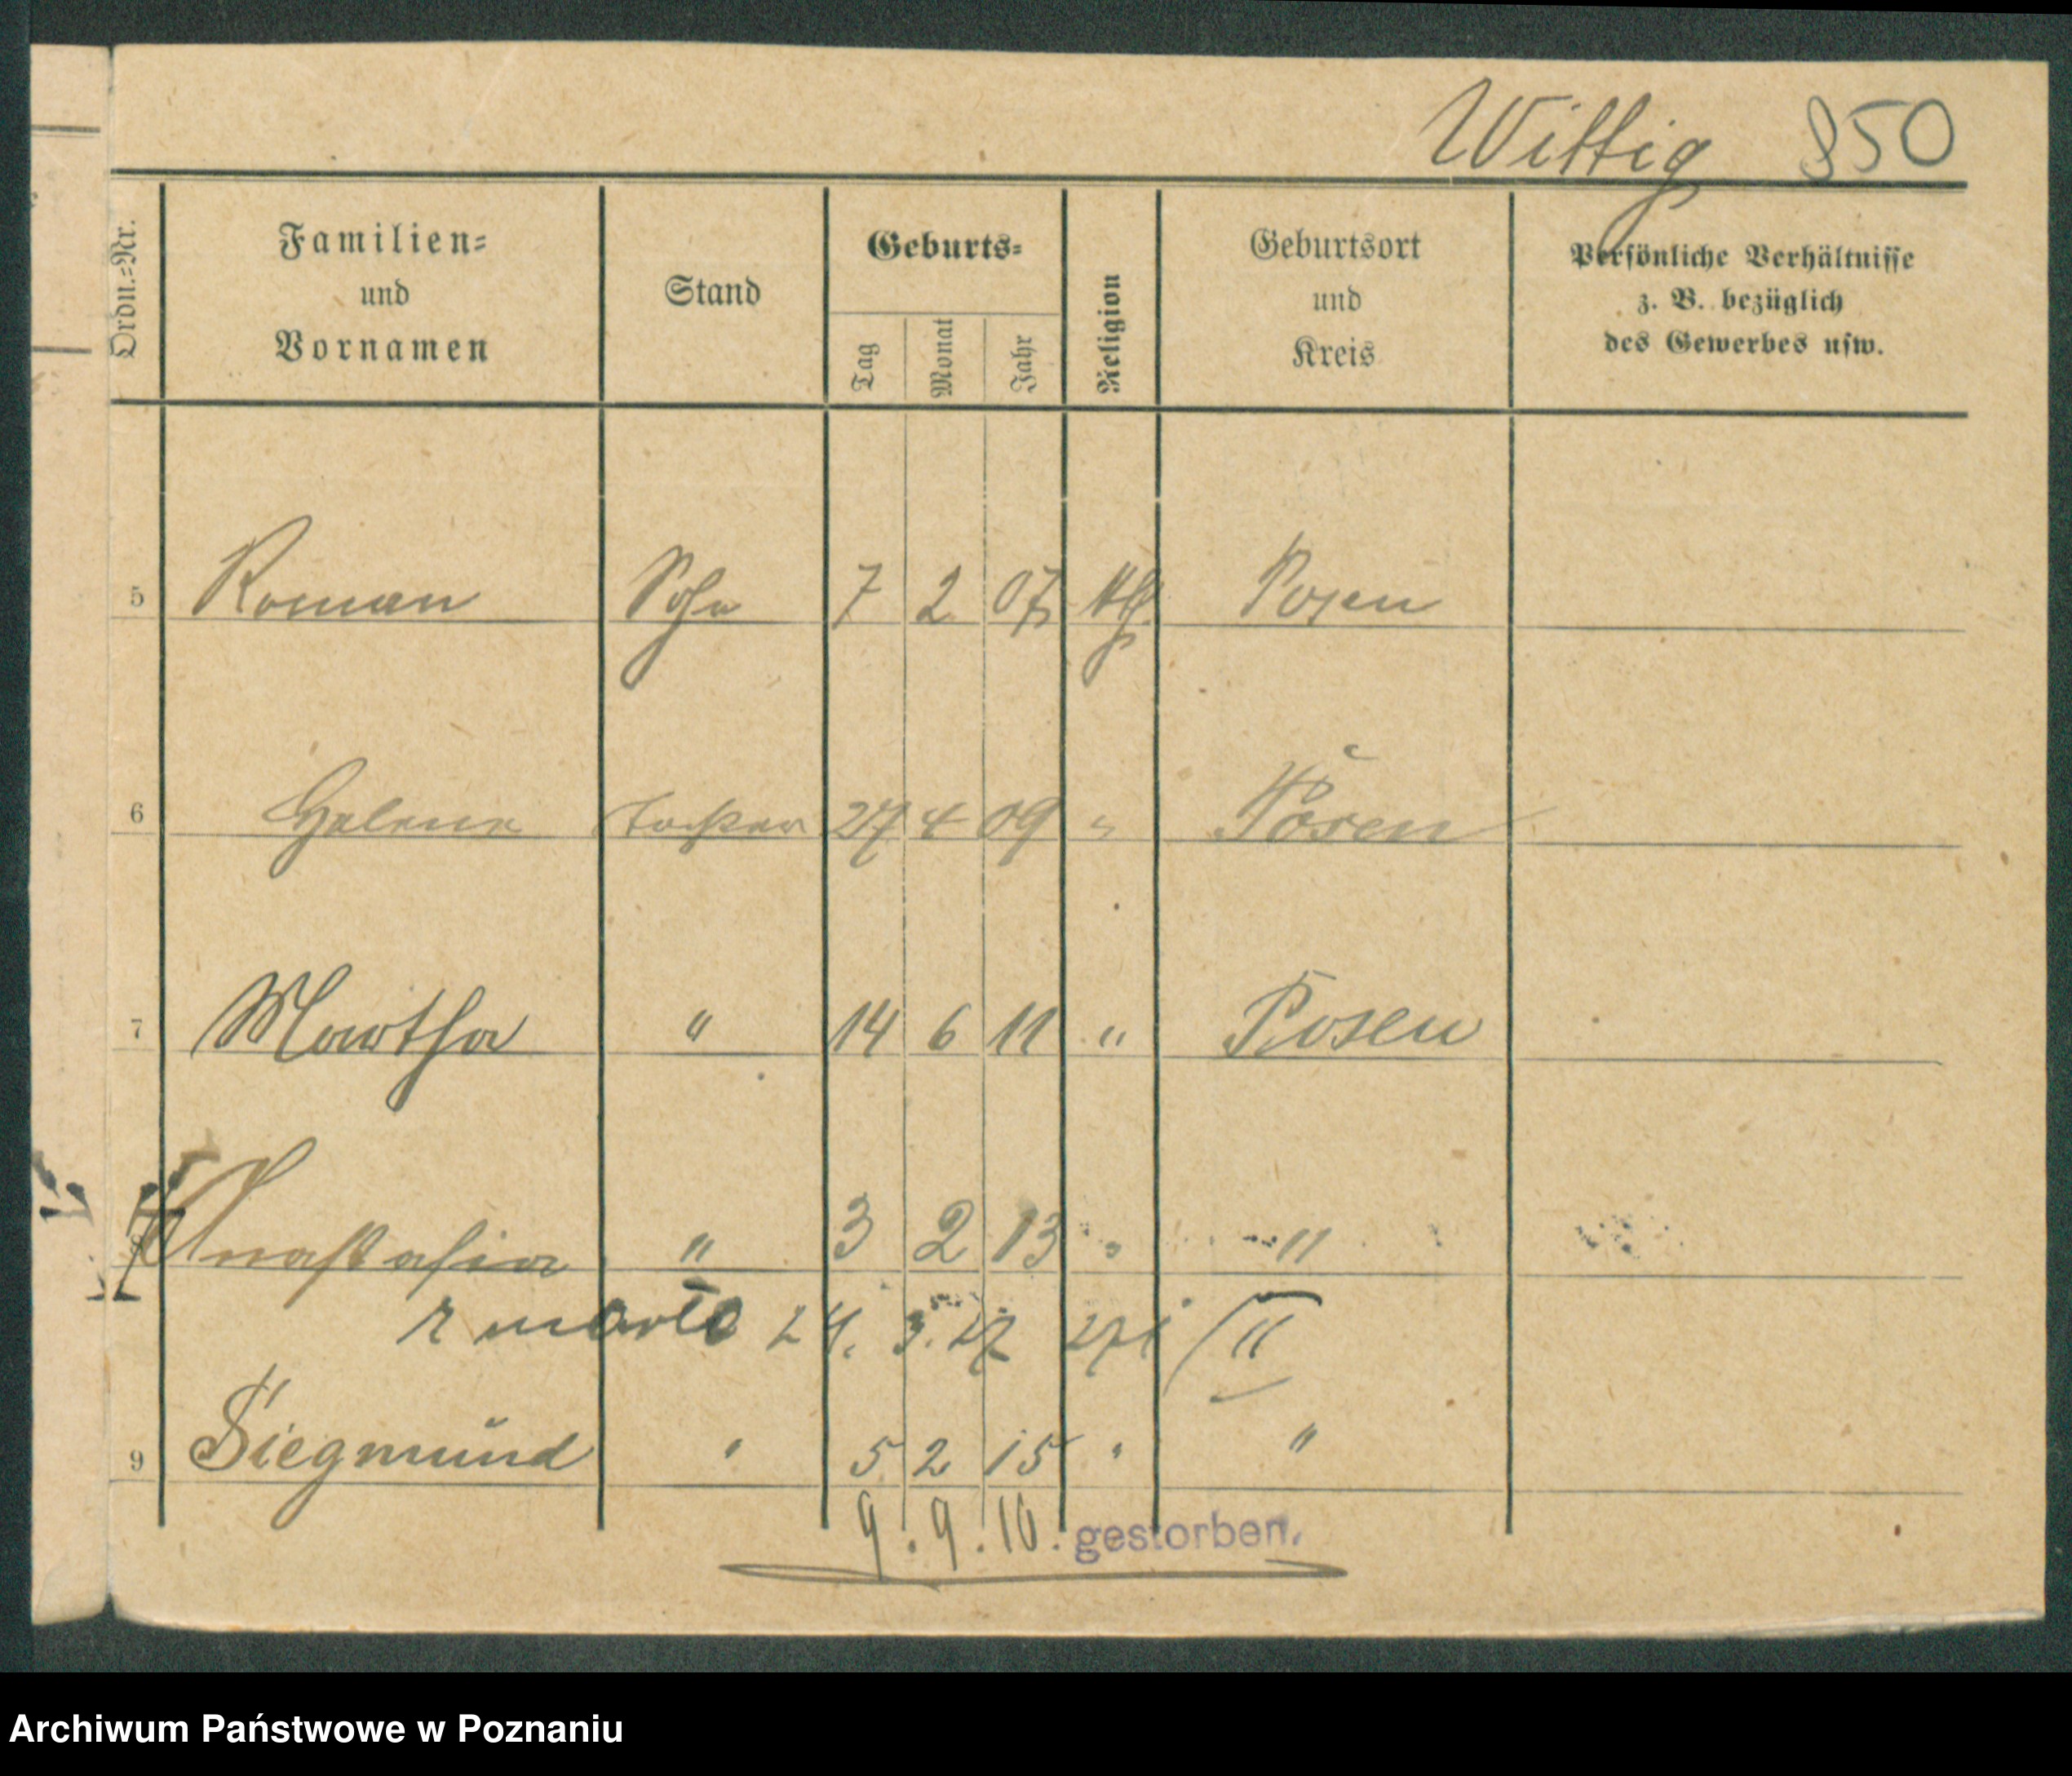 Wittig 850
Ordn.=Nr.
Familien=
und
Vornamen
Stand
Geburts=
Tag
Monat
Jahr
Religion
Geburtsort
und
Kreis
Persönliche Verhältnisse
z. B. bezüglich
des Gewerbes usw.
5 Roman Sohn 7 2 07 Posen
6 Helene Tochter 27 4 09 " Posen
7 Martha " 14 6 11 " Posen
8 Anastasia " 3 2 13 " "
zmarła 24. 3. 27
9 Siegmund " 5 2 15 " "
9. 9. 16. gestorben.
Archiwum Państwowe w Poznaniu